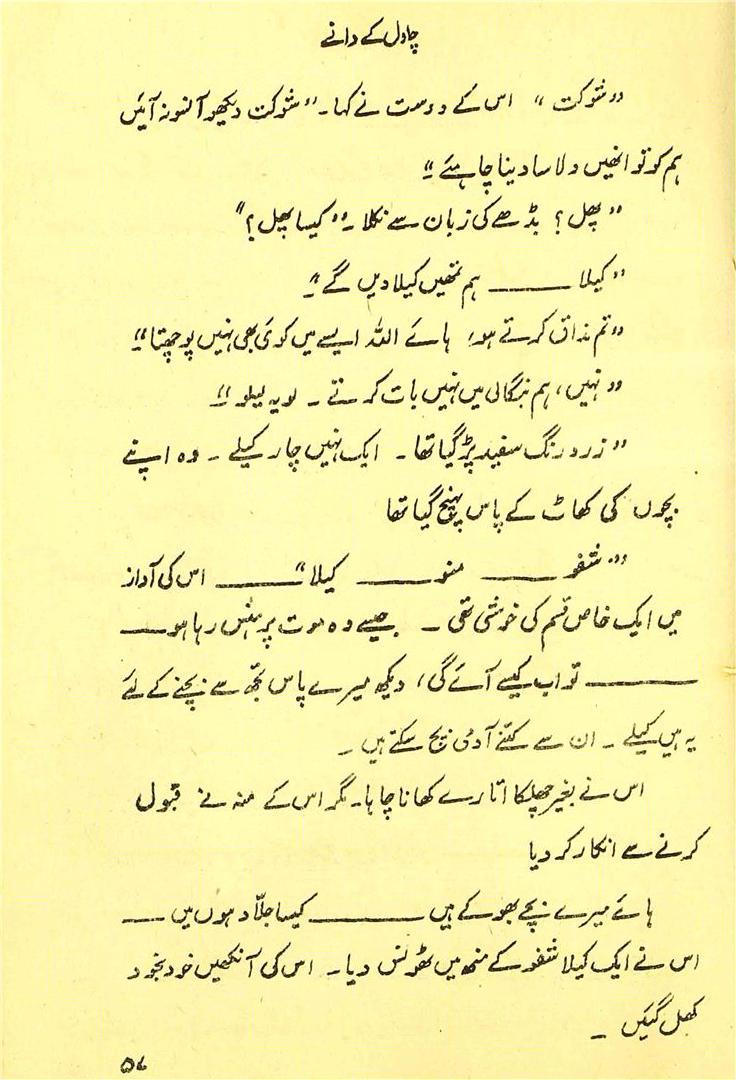 چاول کے دانے
"شوکت" اس کے دوست نے کہا۔ "شوکت دیکھو آنسو نہ آئیں
ہم کو تو انھیں دلاسا دینا چاہئے"
"پھل؟ بڈھے کی زبان سے نکلا۔ "کیسا پھل؟"
"کیلا ——— ہم تمھیں کیلا دیں گے"
"تم مذاق کرتے ہو، ہائے اللہ ایسے میں کوئی بھی نہیں پوچھتا"
"نہیں، ہم بنگالی میں نہیں بات کرتے۔ لو یہ لیلو"
"زرد رنگ سفید پڑ گیا تھا۔ ایک نہیں چار کیلے۔ وہ اپنے
بچوں کی کھاٹ کے پاس پہنچ گیا تھا
"شفو ——— منو ——— کیلا" ——— اس کی آواز
میں ایک خاص قسم کی خوشی تھی۔ جیسے وہ موت پر ہنس رہا ہو ——
——— تو اب کیسے آئے گی، دیکھ میرے پاس تجھ سے بچنے کے لئے
یہ ہیں کیلے۔ ان سے کتنے آدمی بچ سکتے ہیں۔
اس نے بغیر چھلکا اتارے کھانا چاہا۔ مگر اس کے منہ نے قبول
کرنے سے انکار کر دیا
ہائے میرے بچے بھوکے ہیں ——— کیسا جلّاد ہوں میں ——
اس نے ایک کیلا شفو کے منھ میں ٹھونس دیا۔ اس کی آنکھیں خود بخود
کھل گئیں۔
۵۷